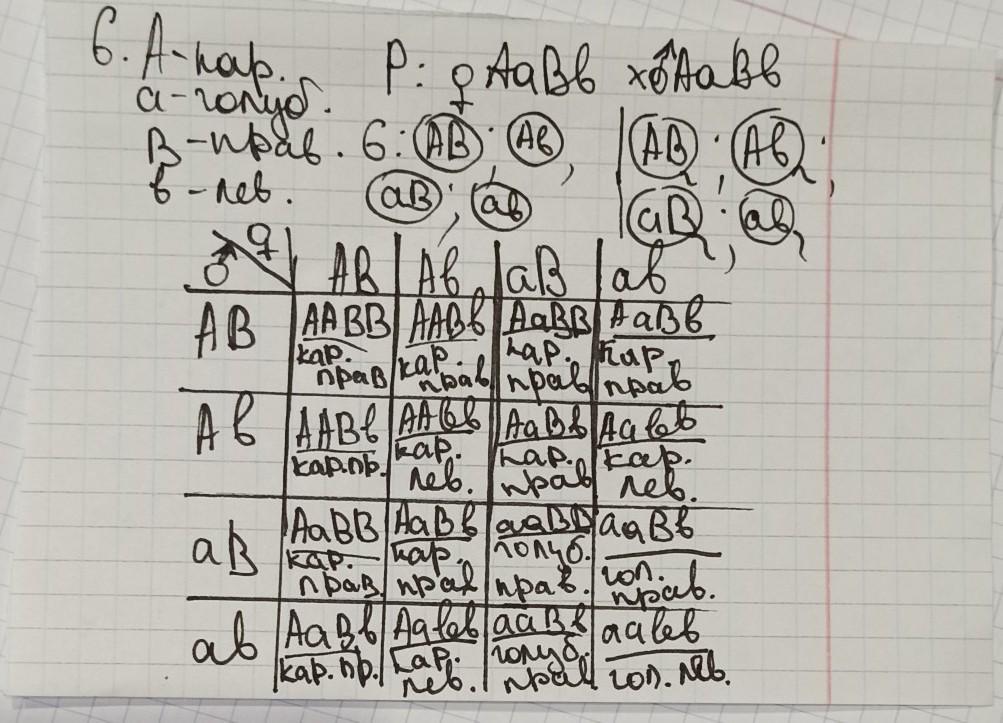 6. А-кар. Р: ♀АаВв х♂АаВв
а-голуб.
В-прав. G: АВ; Ав, АВ; Ав;
в-лев. аВ; ав аВ; ав,
♂ ♀ АВ Ав аВ ав
АВ ААВВ ААВв АаВВ АаВв
кар. кар. кар. кар.
прав прав прав прав
Ав ААВв ААвв АаВв Аавв
кар.пр. кар. кар. кар.
лев. прав лев.
аВ АаВВ АаВв ааВВ ааВв
кар. кар. голуб. гол.
прав. прав прав. прав.
ав АаВв Аавв ааВв аавв
кар.пр. кар. голуб. гол. лев.
лев. прав